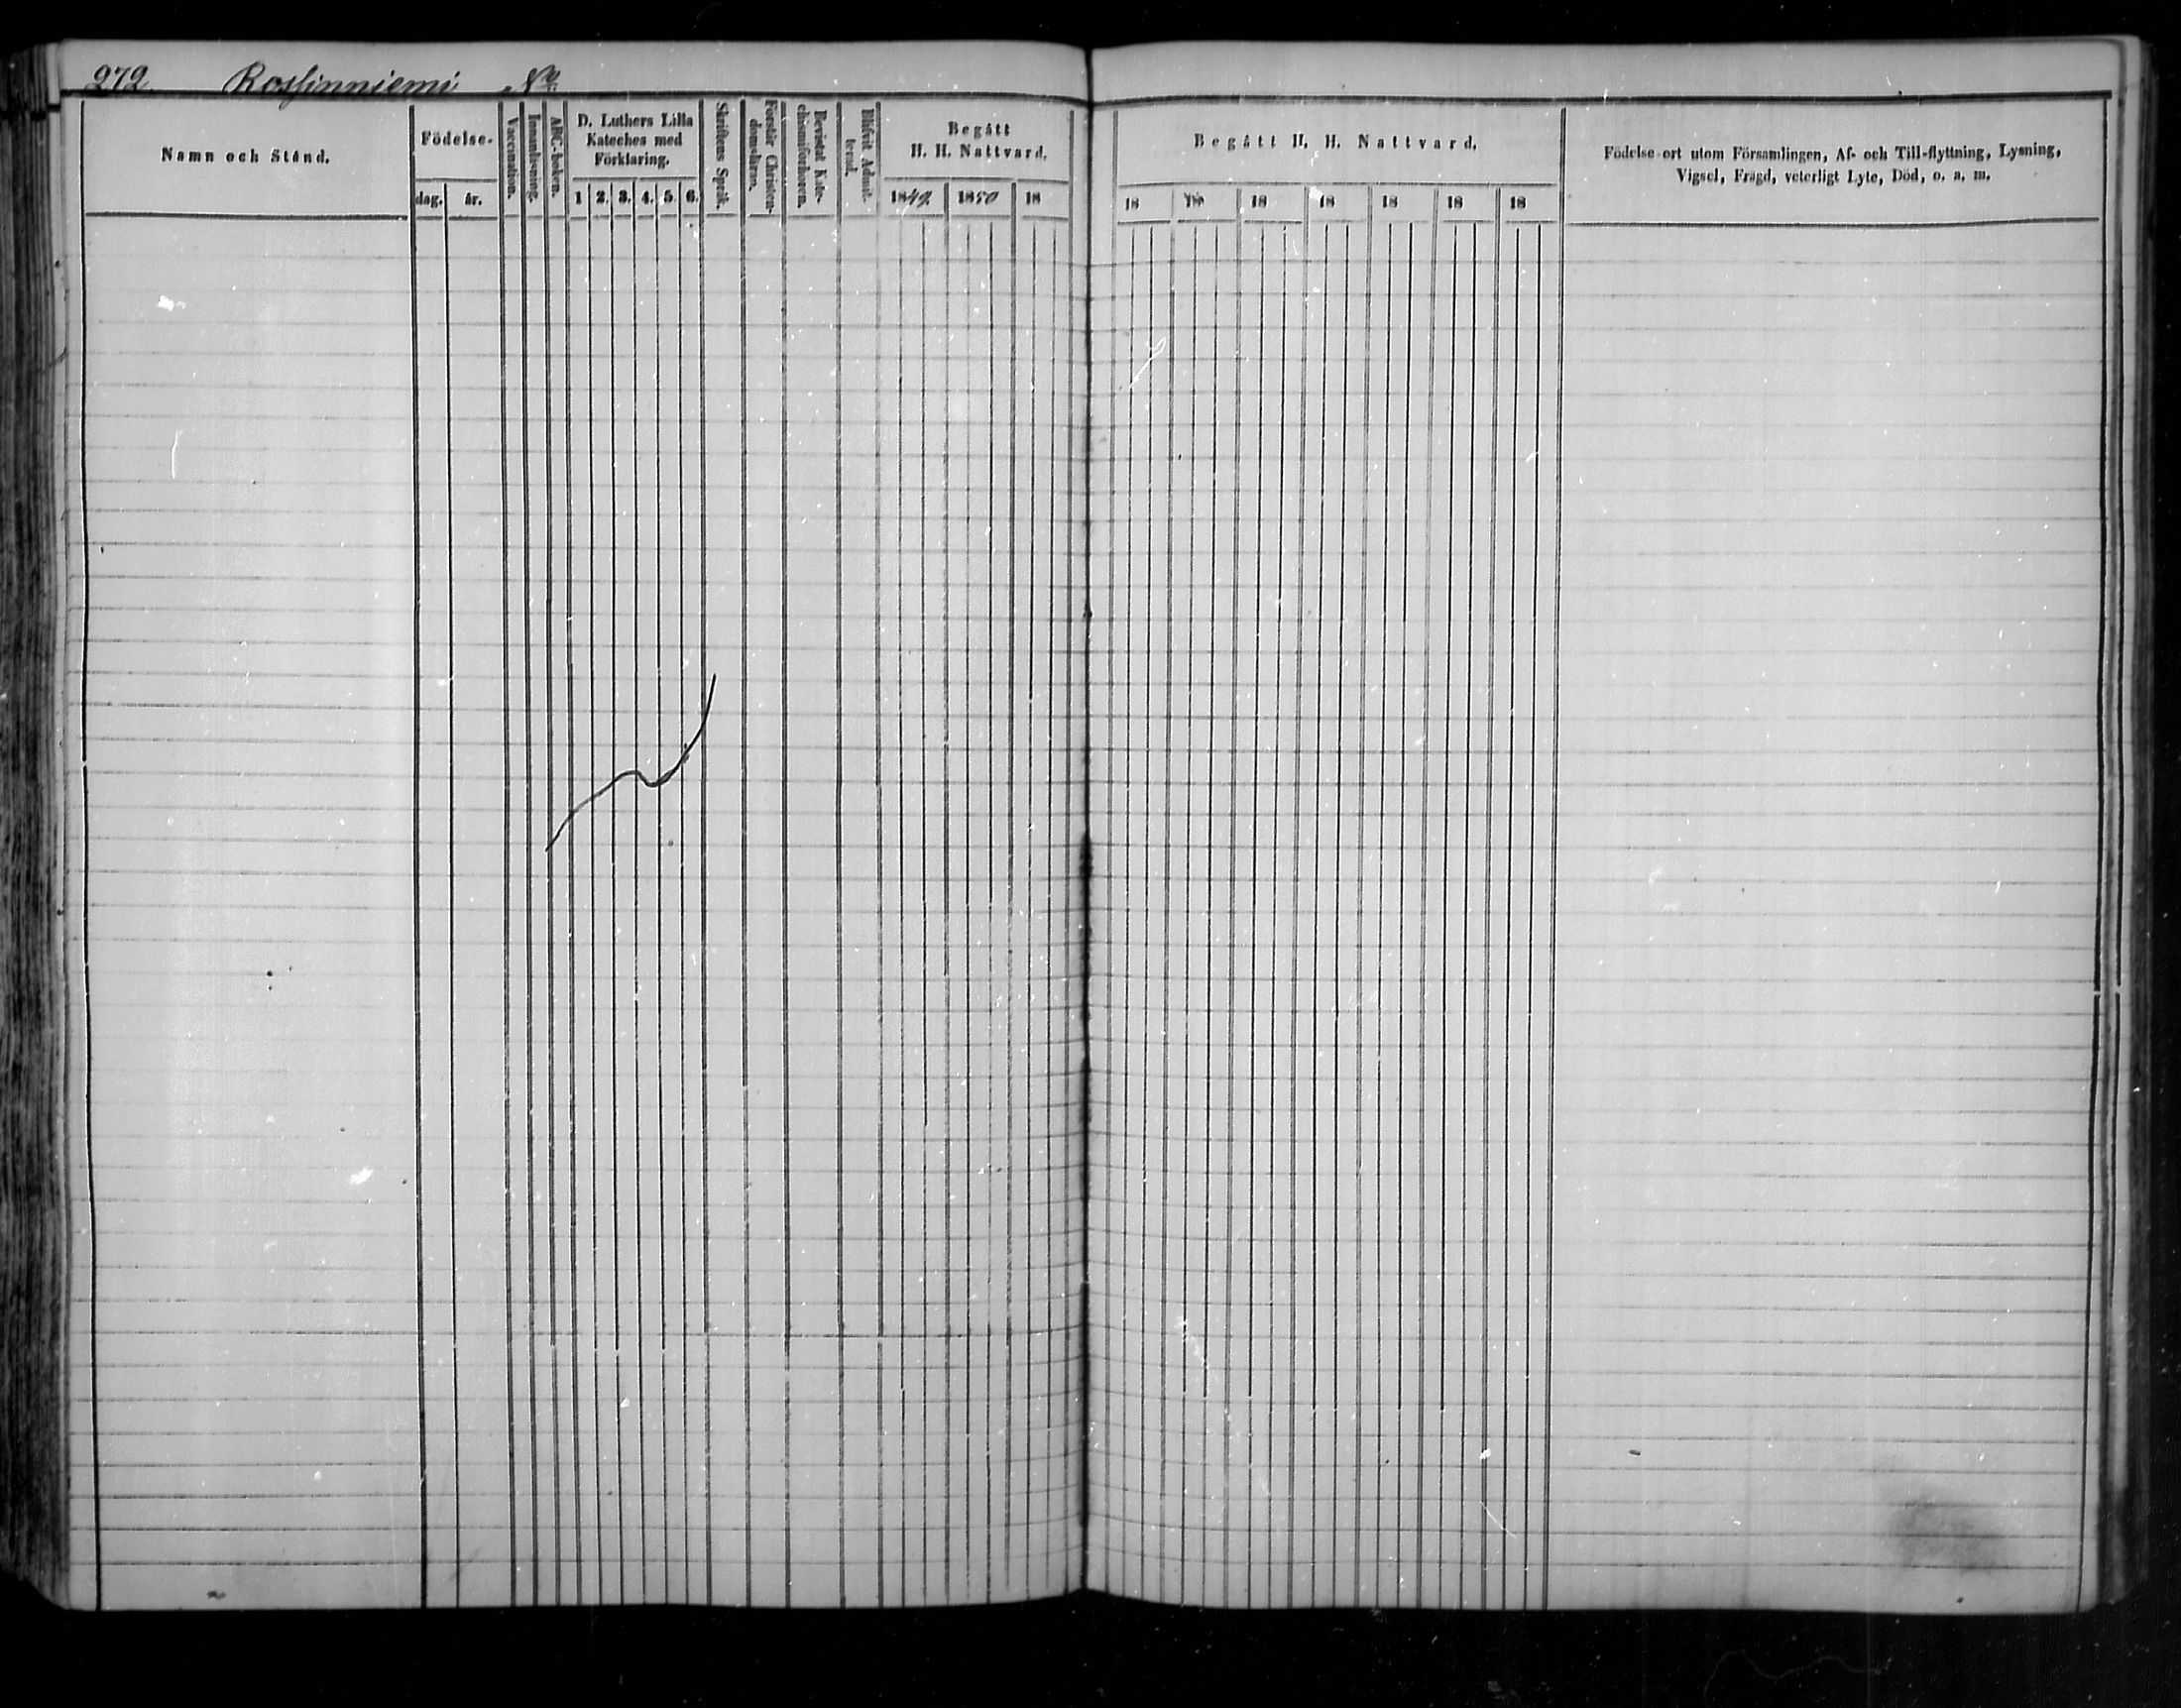 272. Rossinniemi No
Namn och Stånd.
Födelse-
dag. år.
Vaccination.
Innanläsning.
ABC-boken.
D. Luthers Lilla
Kateches med
Förklaring.
1 2. 3. 4. 5. 6.
Skriftens Språk.
Förstår Christen-
domslären.
Bevistat Kate-
chismiförhören.
Blifvit Admit-
terad.
Begått
H. H. Nattvard.
1849. 1850 18
Begått H. H. Nattvard.
18 18 18 18 18 18 18
Födelse-ort utom Församlingen, Af- och Till-flyttning, Lysning,
Vigsel, Frägd, veterligt Lyte, Död, o. a. m.